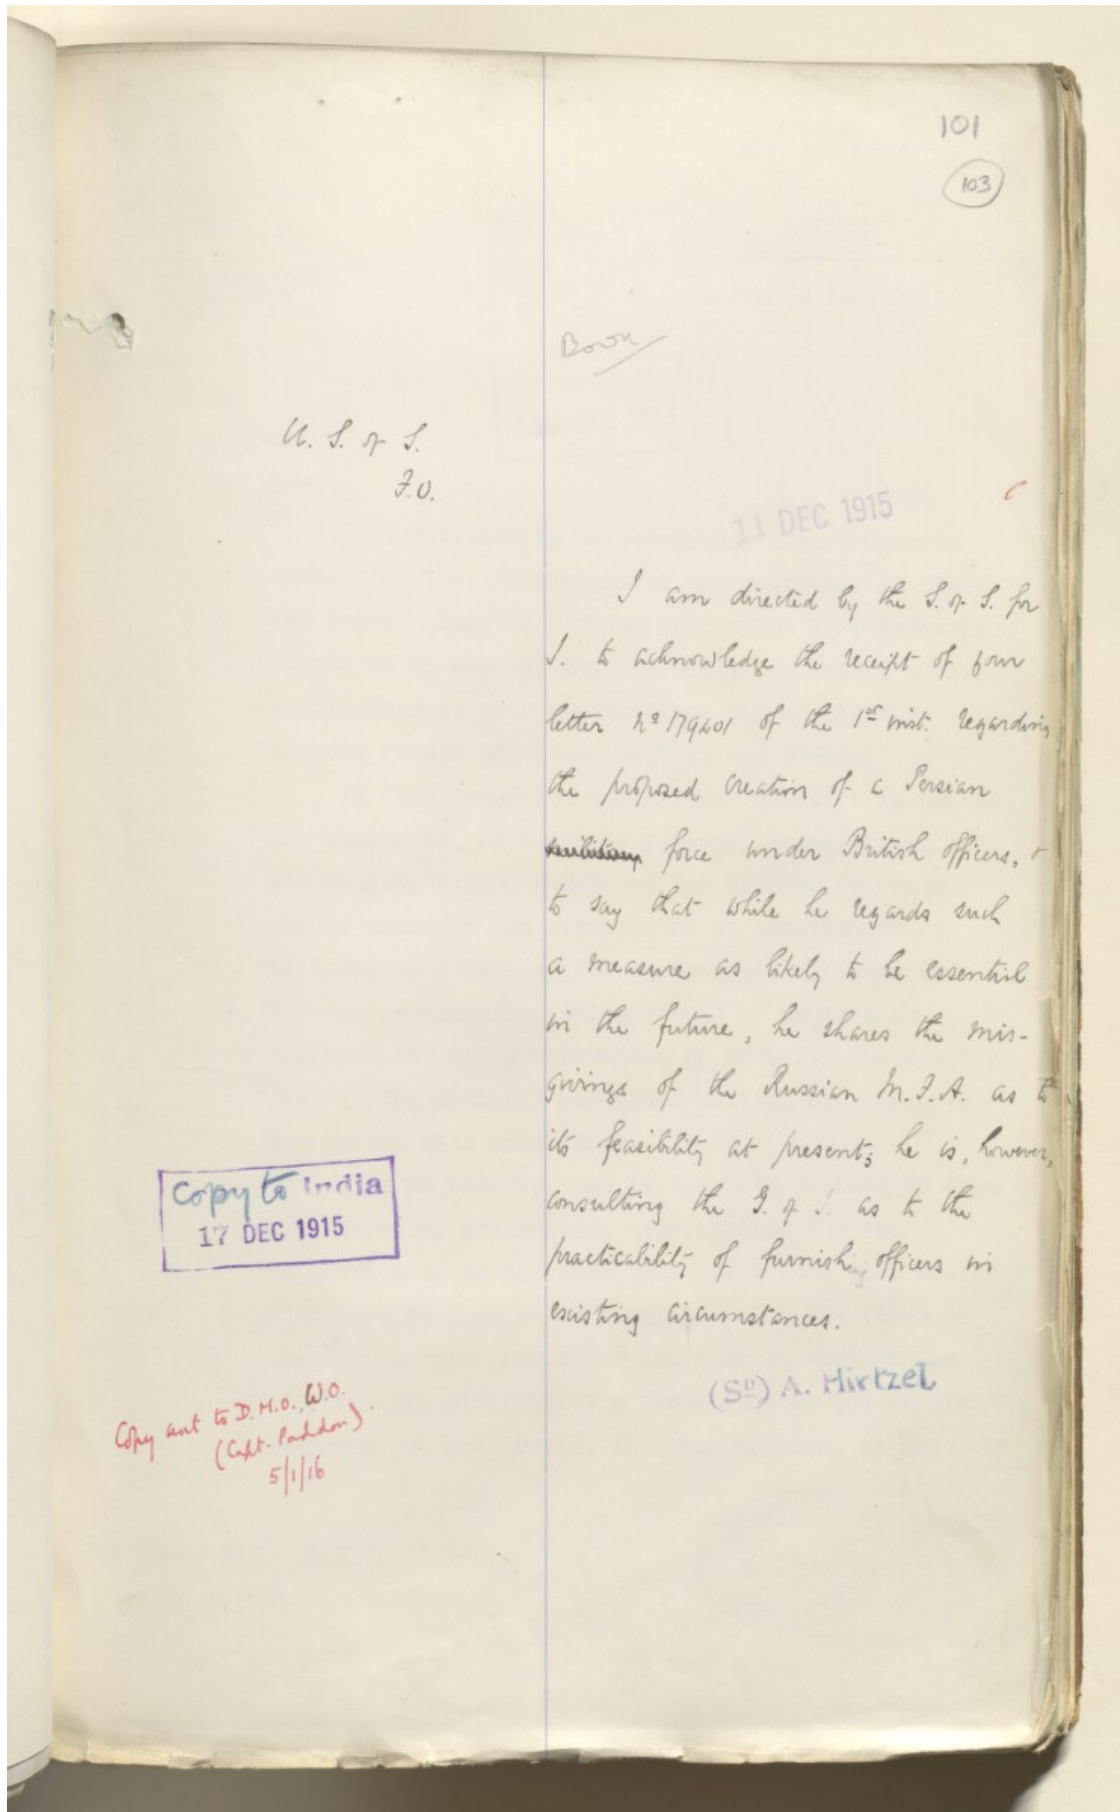 101
103
Book
U. S. of S.
F.O.
11 DEC 1915
I am directed by the S. of S. for
I. to acknowledge the receipt of your
letter No 179401 of the 1st inst. regarding
the proposed creation of a Persian
military force under British officers, &
to say that while he regards such
a measure as likely to be essential
in the future, he shares the mis-
givings of the Russian M.F.A. as to
its feasibility at present; he is, however,
consulting the G. of I. as to the
practicability of furnishing officers in
existing circumstances.
(Sd) A. Hirtzel
Copy to India
17 DEC 1915
Copy sent to D.M.O., W.O.
(Capt. Paddon).
5/1/16